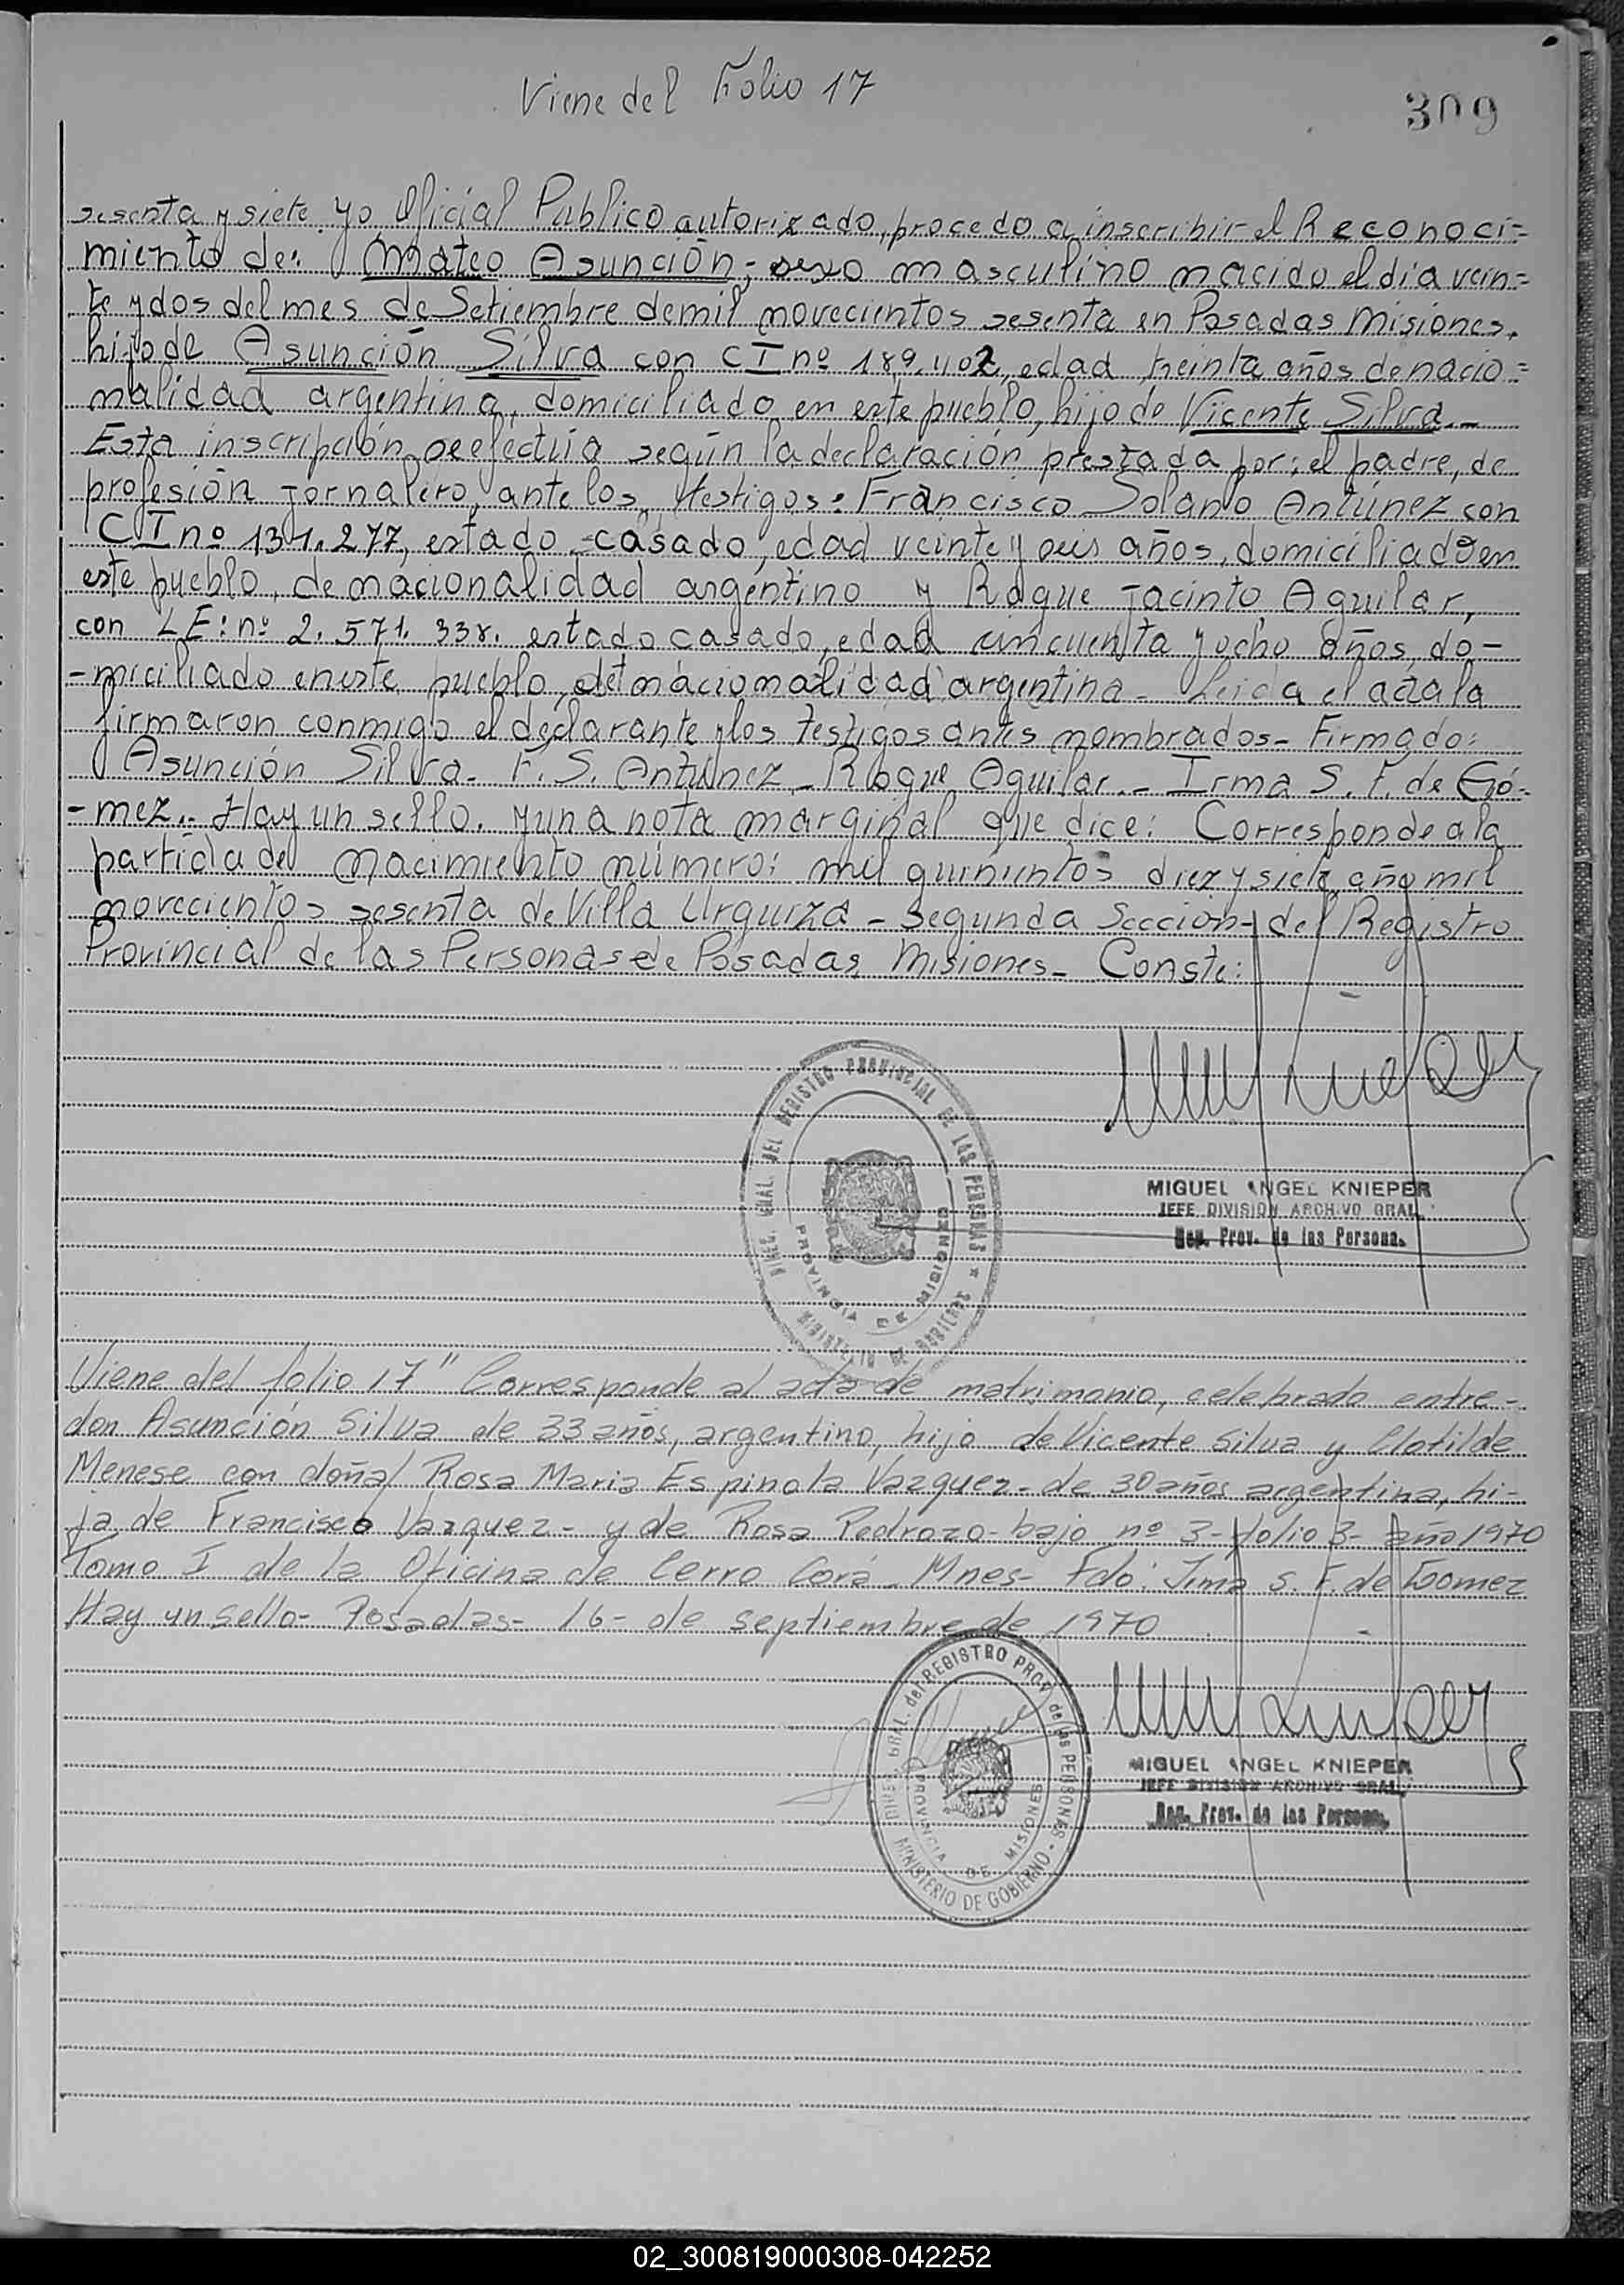 Viene del Folio 17
309
sesenta y siete yo Oficial Publico autorizado, procedo a inscribir el Reconoci=
miento de: Mateo Asunción, sexo masculino nacido el día vein=
te y dos del mes de Setiembre de mil novecientos sesenta en Posadas Misiones.
hijo de Asunción Silva con CI nº 189.402, edad treinta años de nacio=
nalidad argentina, domiciliado en este pueblo, hijo de Vicente Silva.-
Esta inscripción se efectúa según la declaración prestada por: el padre, de
profesión jornalero, ante los testigos: Francisco Solano Antúnez con
CI nº 131.277, estado casado, edad veinte y seis años, domiciliado en
este pueblo, de nacionalidad argentino y Roque Jacinto Aguilar,
con LE: nº 2.571.338. estado casado, edad cincuenta y ocho años, do-
-miciliado en este pueblo, de nacionalidad argentina- Leida el acta la
firmaron conmigo el declarante y los testigos antes nombrados- Firmado:
Asunción Silva- F. S. Antúnez- Roque Aguilar.- Irma S. F. de Gó-
-mez.- Hay un sello. y una nota marginal que dice: Corresponde a la
partida de nacimiento número: mil quinientos diez y siete, año mil
novecientos sesenta de Villa Urquiza - Segunda Sección- del Registro
Provincial de las Personas de Posadas Misiones- Conste:
DIREC. GRAL. DEL REGISTRO PROVINCIAL DE LAS PERSONAS *
PROVINCIA DE MISIONES
MIGUEL ANGEL KNIEPER
JEFE DIVISION ARCHIVO GRAL.
Reg. Prov. de las Persona.
Viene del folio 17" Corresponde al acta de matrimonio, celebrado entre-
don Asunción Silva de 33 años, argentino, hijo de Vicente Silva y Clotilde
Menese con doña Rosa Maria Espinola Vazquez- de 30 años argentina, hi-
ja de Francisco Vazquez- y de Rosa Pedrozo- bajo nº 3- folio 3- año 1970
Tomo I de la Oficina de Cerro Corá- Mnes- Fdo: Irma S. F. de Gomez
Hay un sello- Posadas- 16- de septiembre de 1970
DIREC. GRAL. del REGISTRO PROV. de las PERSONAS -
MINISTERIO DE GOBIERNO
PROVINCIA DE MISIONES
MIGUEL ANGEL KNIEPER
JEFE DIVISION ARCHIVO GRAL.
Reg. Prov. de las Persona.
02_300819000308-042252